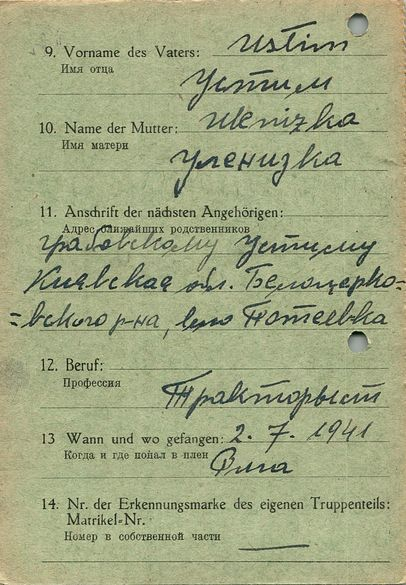 9. Vorname des Vaters: Ustim
Имя отца
Устим
10. Name der Mutter: Ulenizka
Имя матери
Уленизка
11. Anschrift der nächsten Angehörigen:
Адрес ближайших родственников
Грабовскому Устиму
Киевская обл. Белоцерко-
=вского р-на, село Потеевка
12. Beruf:
Профессия
Тракторыст
13 Wann und wo gefangen: 2. 7. 1941
Когда и где попал в плен
14. Nr. der Erkennungsmarke des eigenen Truppenteils:
Matrikel=Nr.
Номер в собственной части —